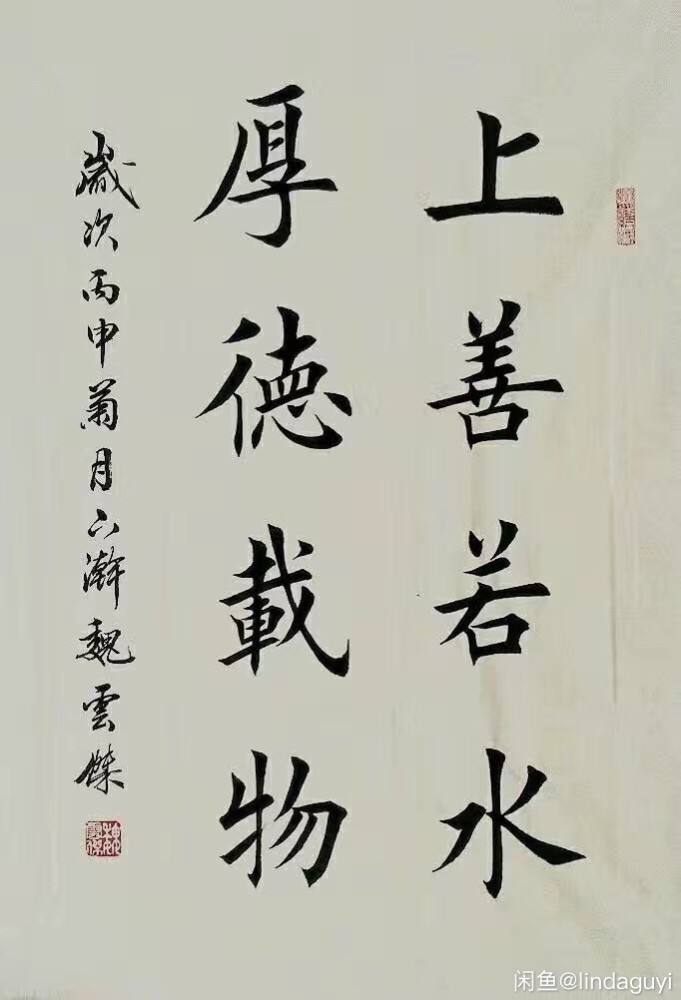 上善若水
厚德載物
歲次丙申菊月下澣魏雲傑
闲鱼@lindaguyi